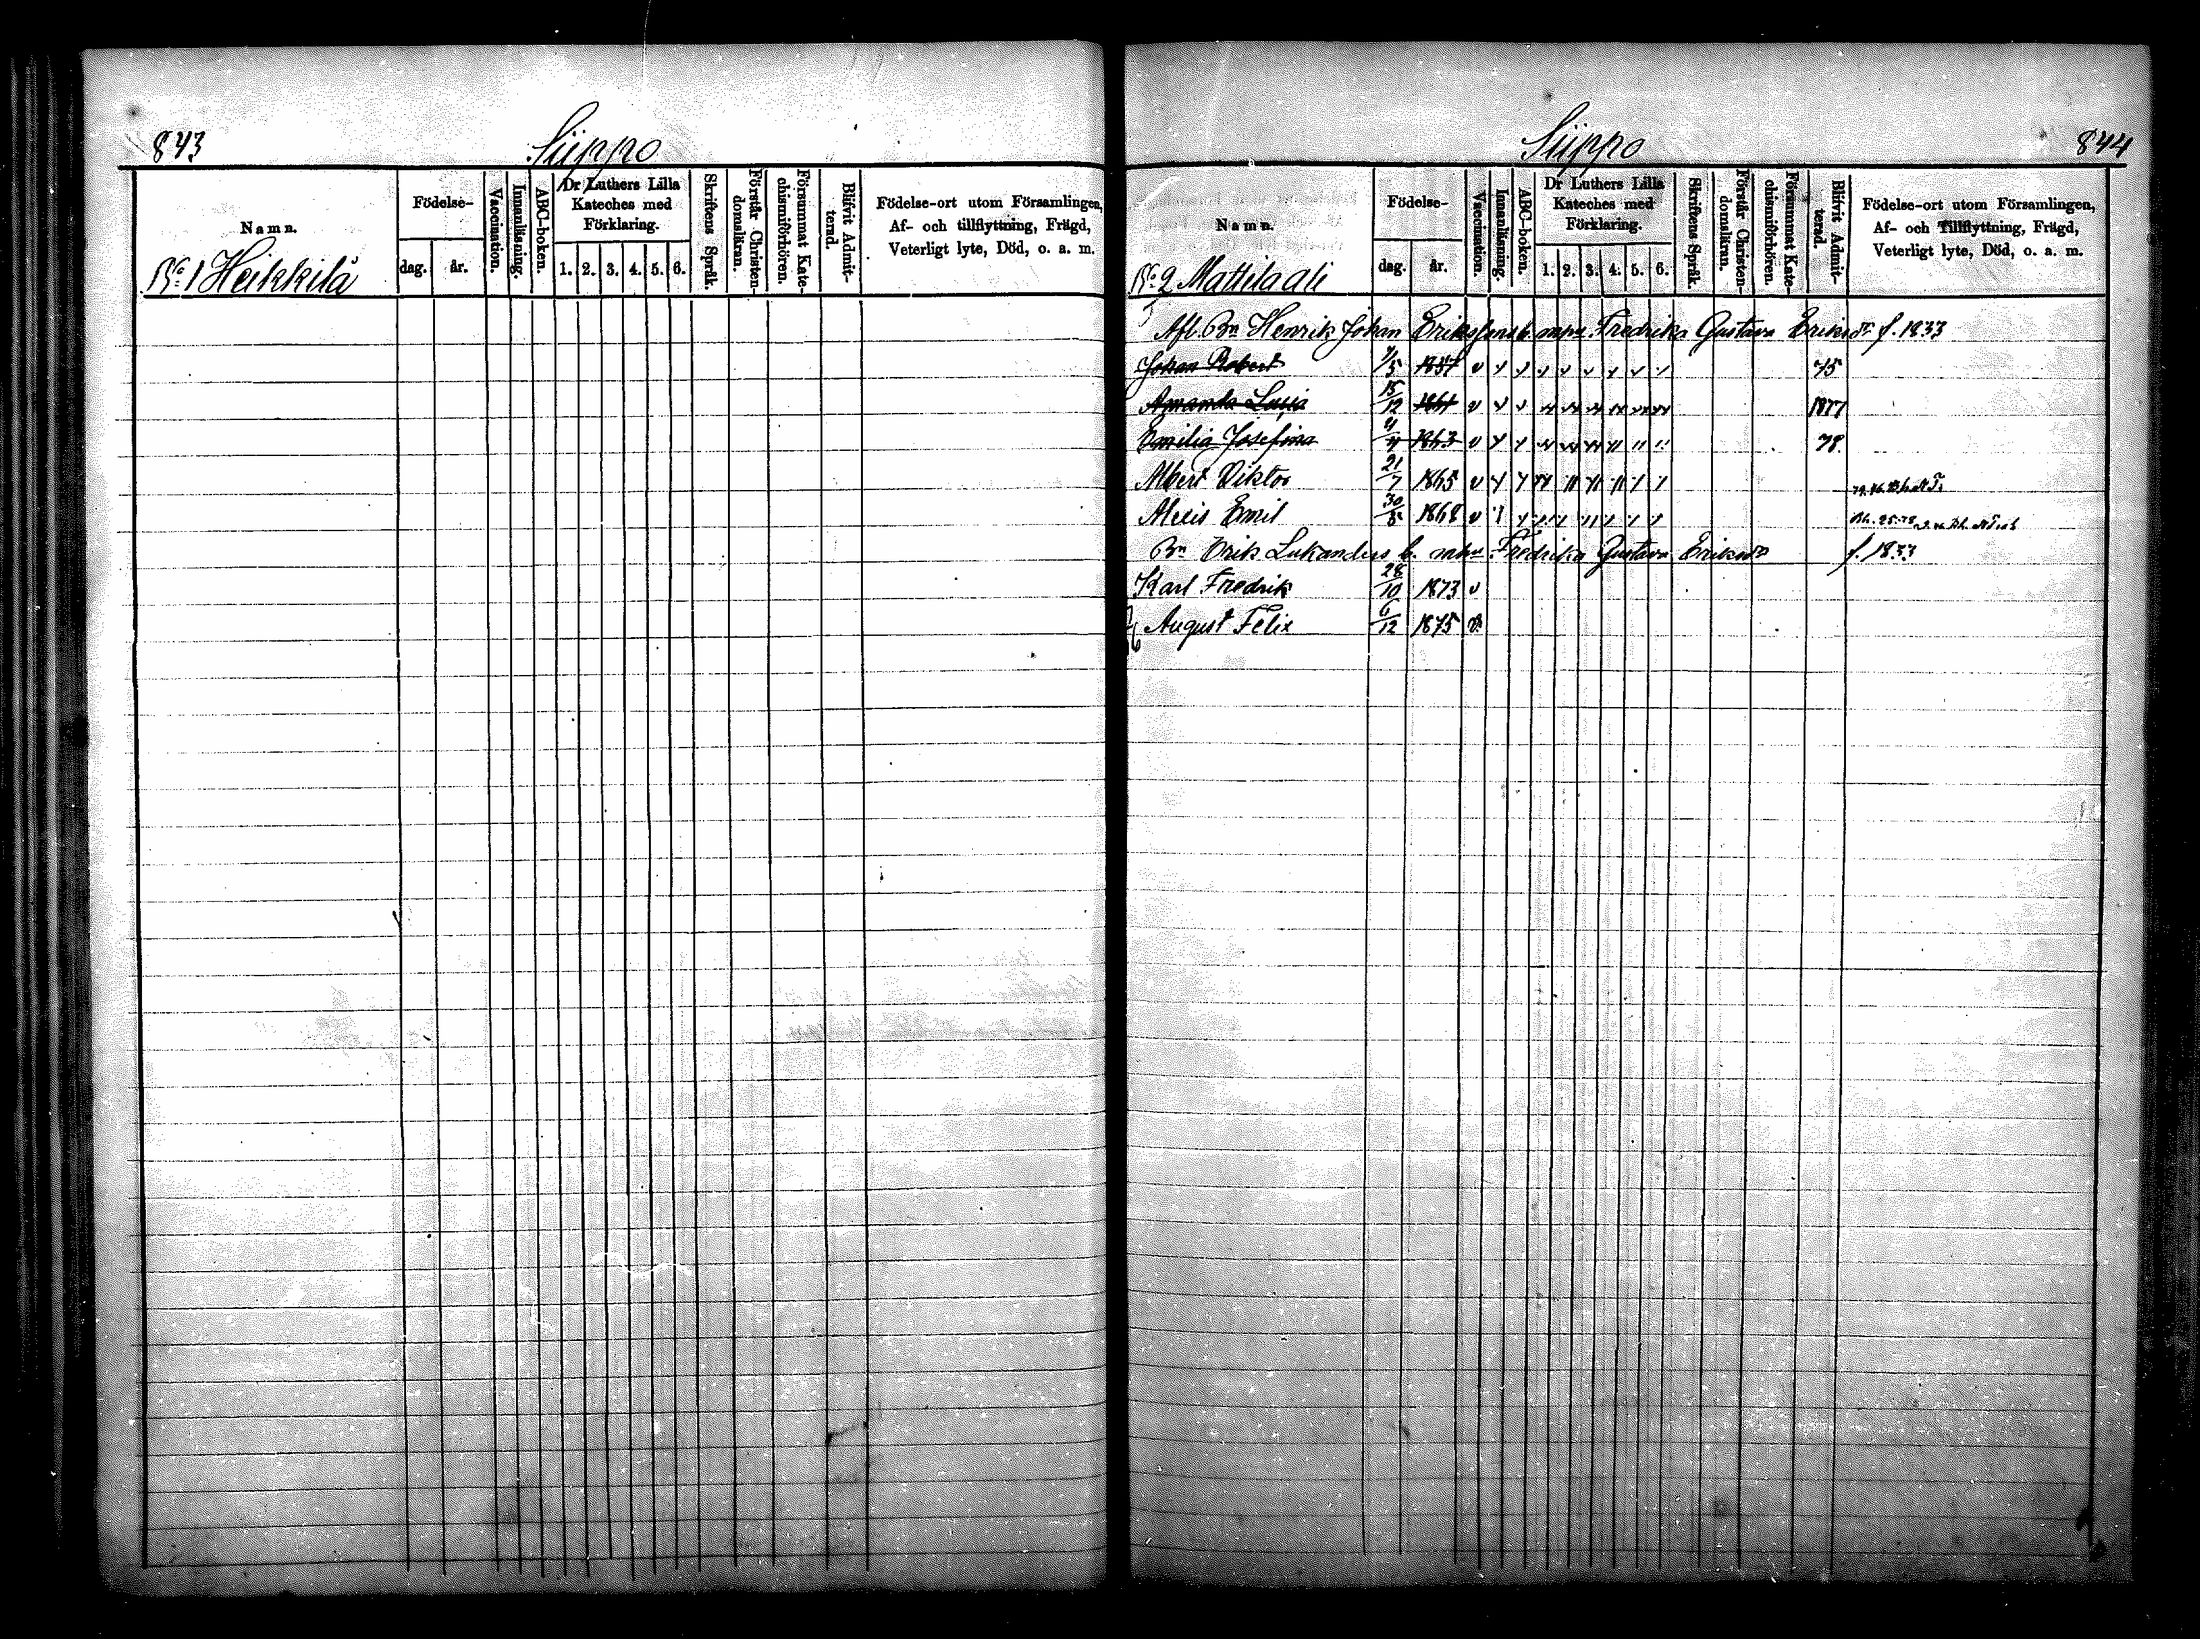 843
Siippo
Namn.
Födelse-
dag.
år.
Vaccination.
Innanläsning.
ABC-boken.
Dr Luthers Lilla
Kateches med
Förklaring.
1. 2. 3. 4. 5. 6.
Skriftens Språk.
Förstår Christen-
domsläran.
Försummat Kate-
chismiförhören.
Blifvit Admit-
terad.
Födelse-ort utom Församlingen,
Af- och tillflyttning, Frägd,
Veterligt lyte, Död, o. a. m.
No. 1 Heikkilä
844
Siippo
Namn.
Födelse-
dag.
år.
Vaccination.
Innanläsning.
ABC-boken.
Dr Luthers Lilla
Kateches med
Förklaring.
1. 2. 3. 4. 5. 6.
Skriftens Språk.
Förstår Christen-
domsläran.
Försummat Kate-
chismiförhören.
Blifvit Admit-
terad.
Födelse-ort utom Församlingen,
Af- och Tillflyttning, Frägd,
Veterligt lyte, Död, o. a. m.
No. 2 Mattila ali
Afl. Bn Henrik Johan Erikssons b. m hu Fredrika Gustava Eriksdr f. 1833
Johan Robert 1857 v 75
Amanda 15/12 v 1877
Emilia Josefina 1863 v 78
Albert Viktor 21/7 1865 v
Alexis Emil 30/5 1868 v
Bn Erik Lukanders b. m hu Fredrika Gustava Eriksdr f. 1833
Karl Fredrik 28/10 1873 v
August Felix 6/12 1875 v.